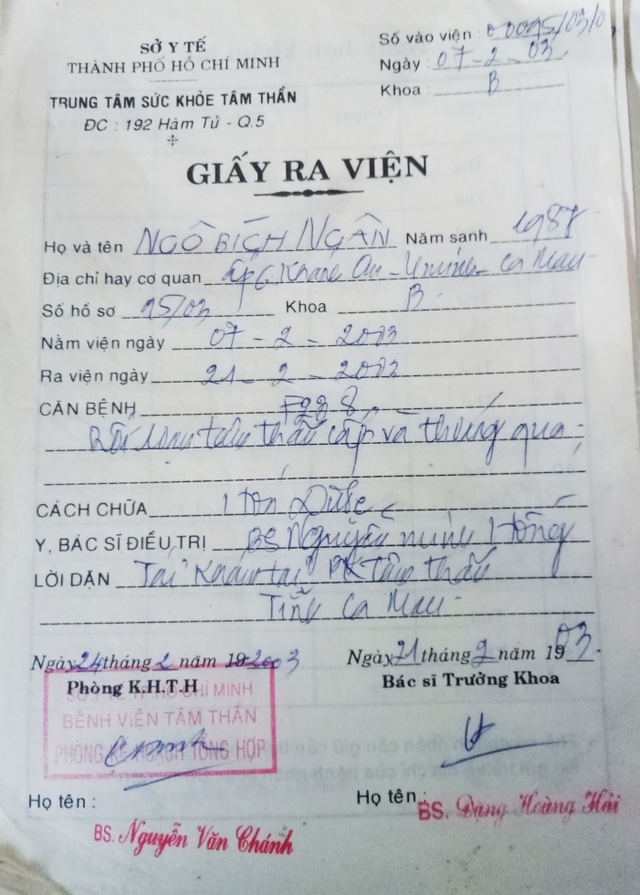 SỞ Y TẾ
THÀNH PHỐ HỒ CHÍ MINH
TRUNG TÂM SỨC KHỎE TÂM THẦN
ĐC : 192 Hàm Tử - Q.5
Số vào viện : 00095/03/0
Ngày : 07-2-03.
Khoa : B
GIẤY RA VIỆN
Họ và tên NGÔ BÍCH NGÂN Năm sanh 1987
Địa chỉ hay cơ quan ấp 6 Khánh An - U minh - Cà Mau -
Số hồ sơ 95/03 Khoa B.
Nằm viện ngày 07 - 2 - 2003
Ra viện ngày 21 - 2 - 2003
CĂN BỆNH F23 8,
Rối loạn tâm thần cấp và thoáng qua
CÁCH CHỮA Hóa Dược
Y, BÁC SĨ ĐIỀU TRỊ BS Nguyễn minh Hồng
LỜI DẶN Tái khám tại PK tâm thần
Tỉnh Cà Mau -
Ngày 24 tháng 2 năm 19 2003
Phòng K.H.T.H
Ngày 21 tháng 2 năm 19 03.
Bác sĩ Trưởng Khoa
SỞ Y TẾ TP HỒ CHÍ MINH
BỆNH VIỆN TÂM THẦN
PHÒNG KẾ HOẠCH TỔNG HỢP
Họ tên :
BS. Nguyễn Văn Chánh
Họ tên :
BS. Đặng Hoàng Hải